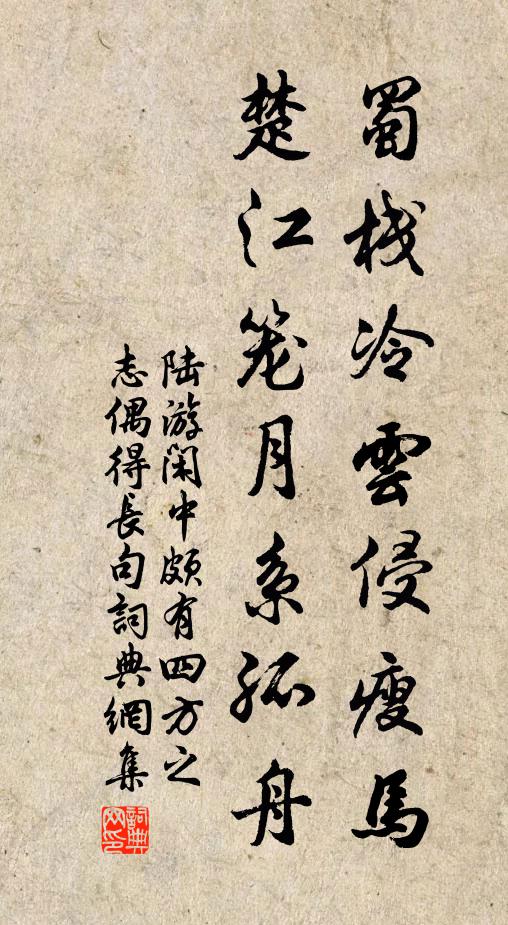 蜀栈冷雲侵瘦馬
楚江笼月系孤舟
陆游闲中颇有四方之
志偶得長句詞典網集
詞典
网印